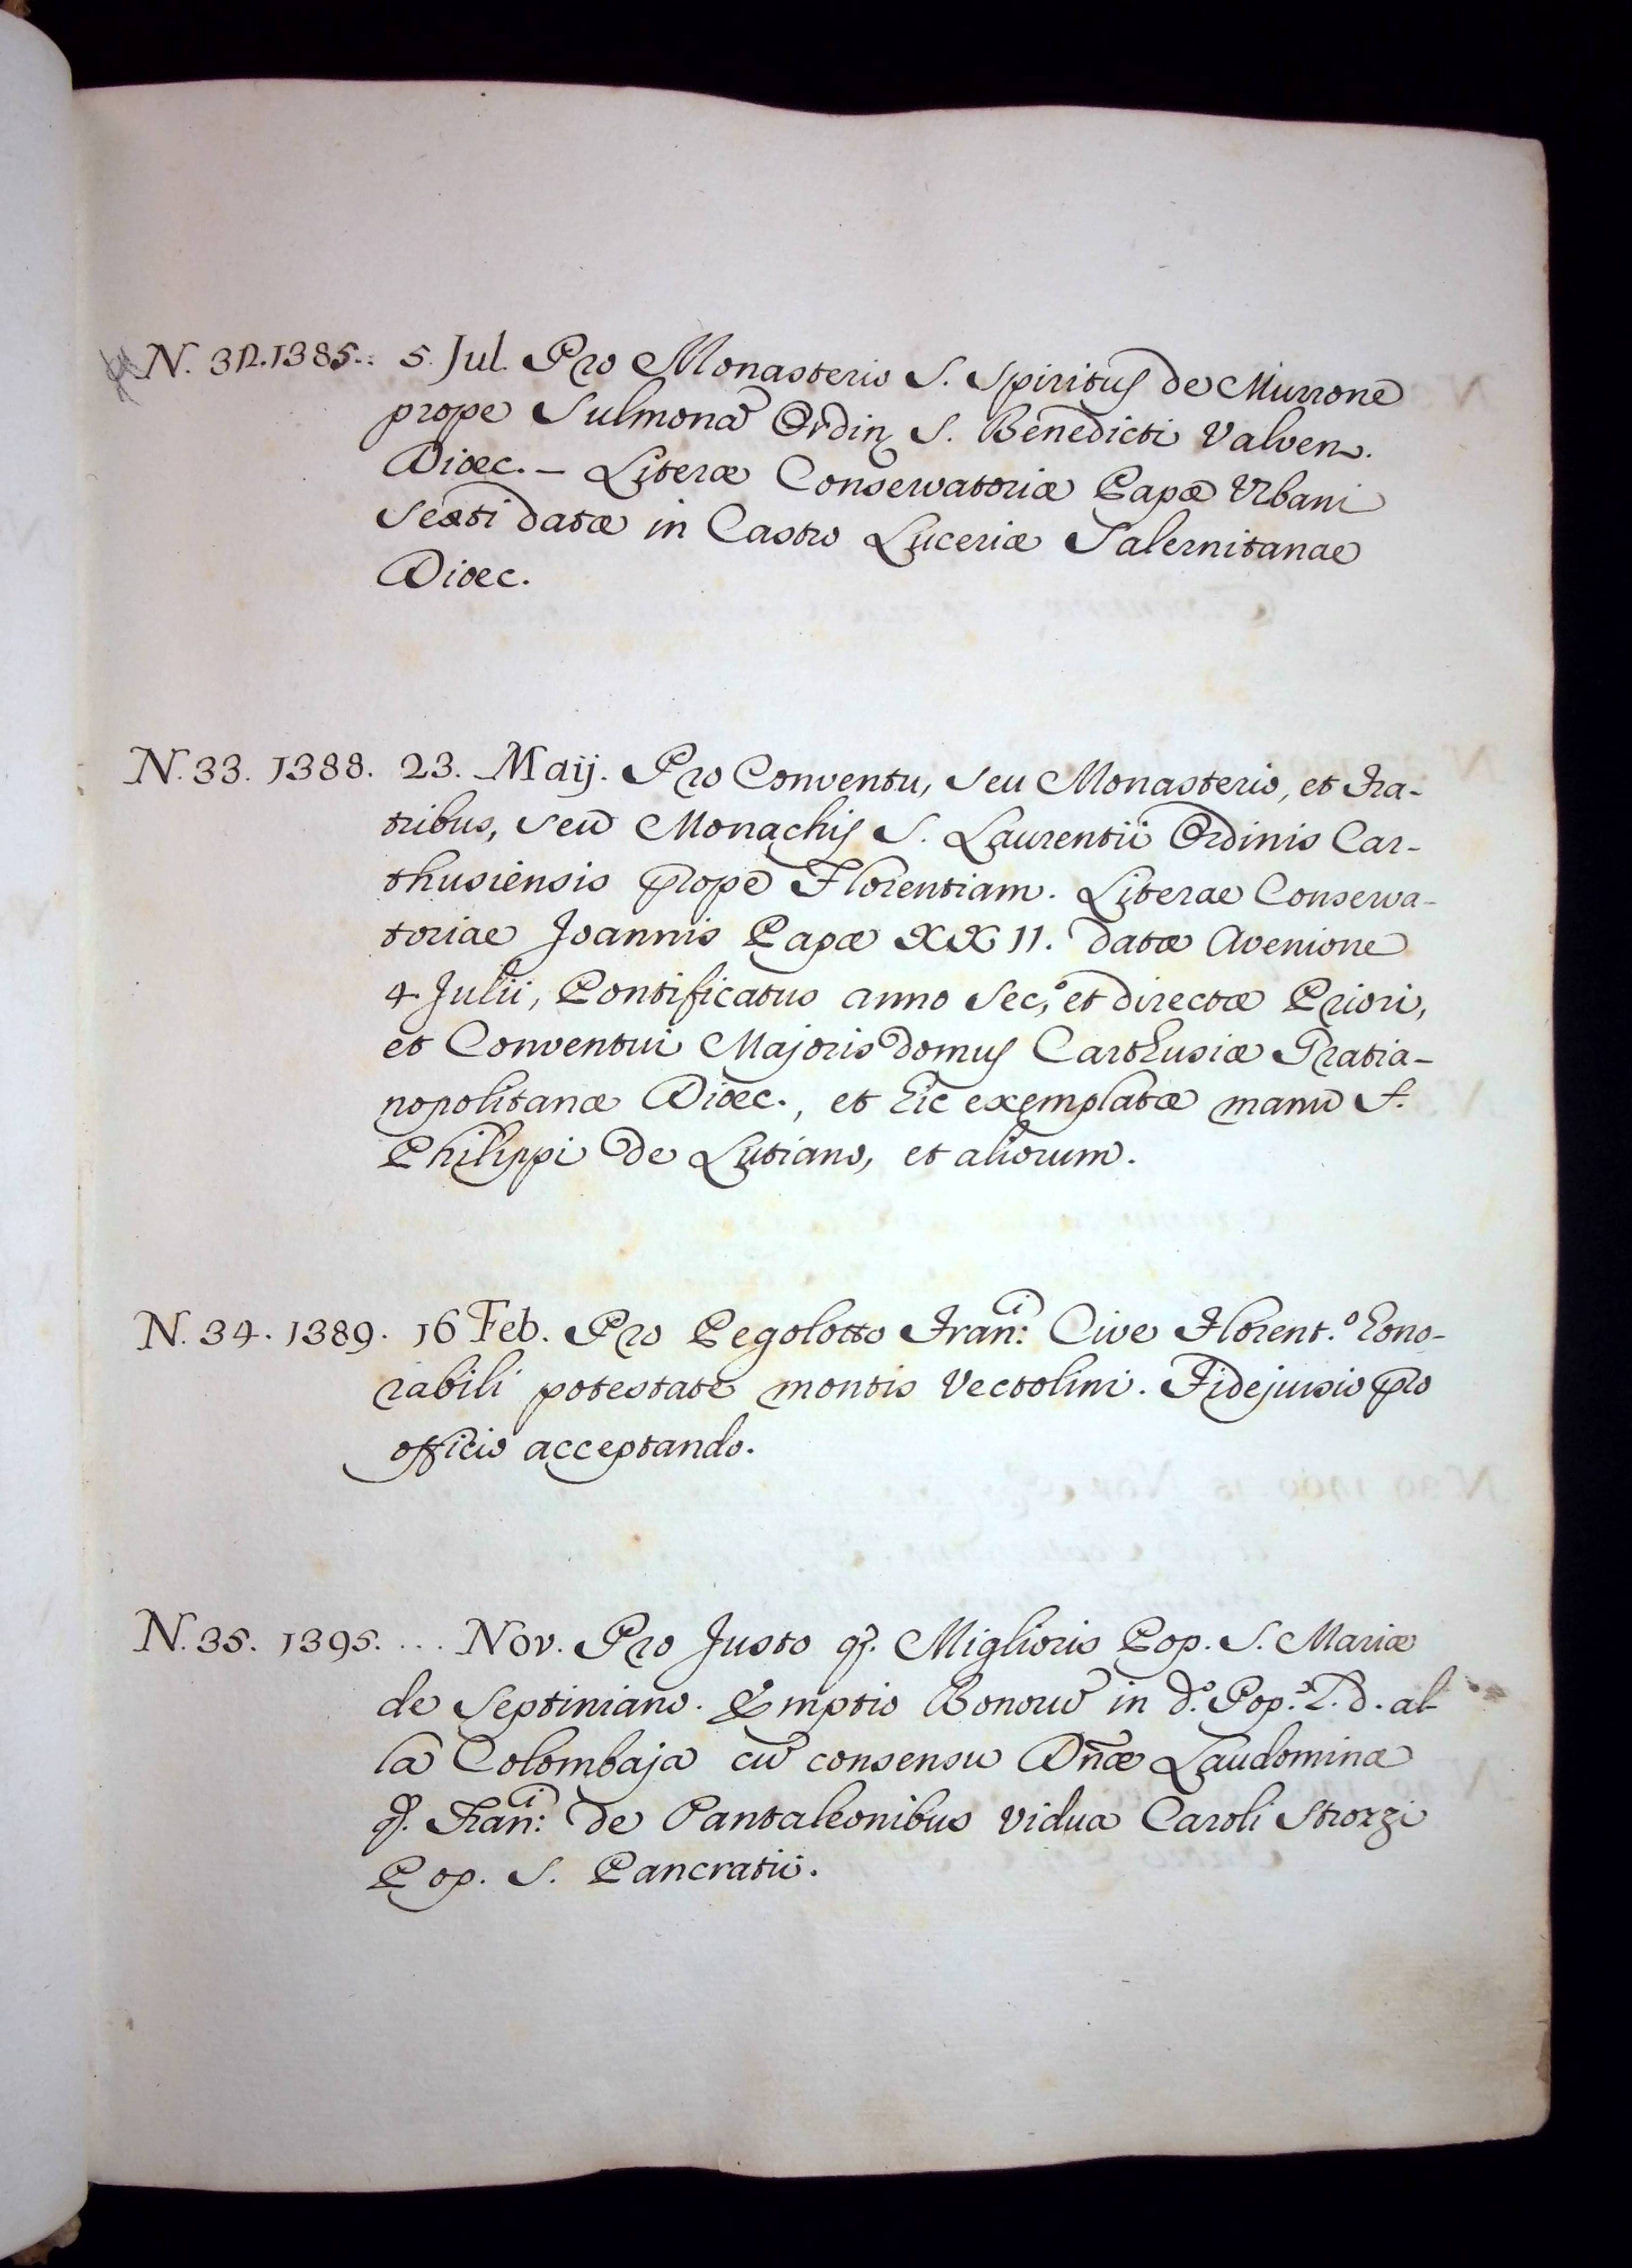 N. 32. 1385.. 5. Jul. Pro Monasterio S. Spiritus de Murrone
prope Sulmonã Ordinˢ S. Benedicti Valven.
Dioec. – Literæ Conservatoriæ Papæ Urbani
Sexti datæ in Castro Luceriæ Salernitanae
Dioec.
N. 33. 1388. 23. Maij. Pro Conventu, seu Monasterio, et Fra-
tribus, seu Monachis S. Laurentii Ordinis Car-
thusiensis prope Florentiam. Literae Conserva-
toriae Joannis Papæ XXII. datæ Avenione
4 Julii, Pontificatus anno Sec,º et directæ Priori,
et Conventui Majoris domus Carthusiæ Gratia-
nopolitanæ Dioec., et hic exemplatæ manu S.
Philippi de Lutiano, et aliorum.
N. 34. 1389. 16 Feb. Pro Pegolotto Franⁱ: Cive Florent.º hono-
rabili potestate montis Vectolini. Fidejussio pro
officio acceptando.
N. 35. 1395. ... Nov. Pro Justo q. Miglioris Pop. S. Mariæ
de Septiniano. Emptio Bonorũ in d.º Pop.º L. d. al-
la Colombaja cũ consensu Dñæ Laudominæ
q. Franⁱ: de Pantaleonibus vidua Caroli Strozzi
Pop. S. Pancratii.